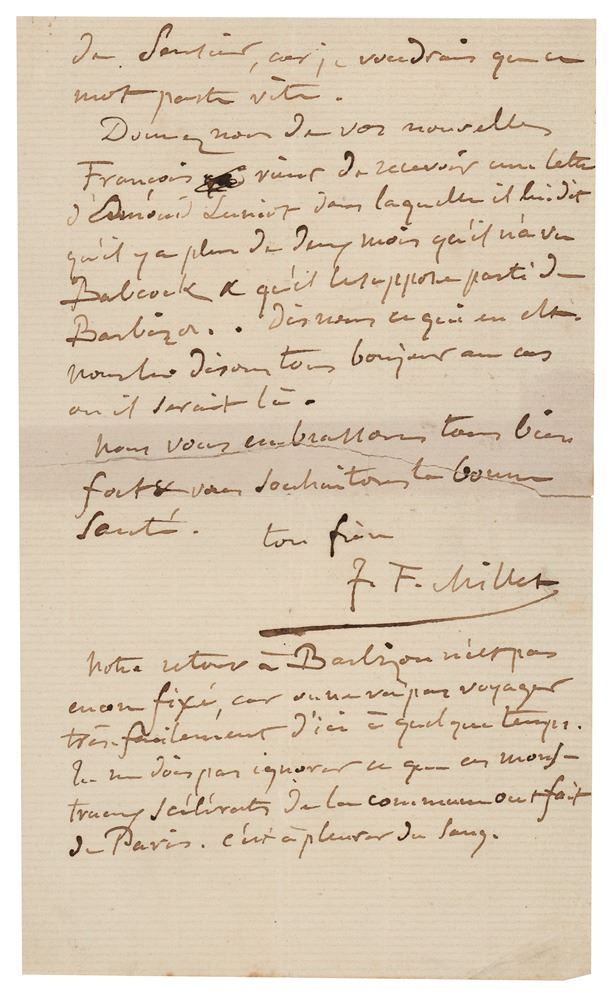 de Sensier, car je voudrais que ce
mot parte vite.
Donnez nous de vos nouvelles
François vient de recevoir une lettre
d'Edmond dans laquelle il lui dit
qu'il y a plus de deux mois qu'il n'a vu
Babcock & qu'il le suppose parti de
Barbizon. Dis nous ce qui en est.
nous lui disons tous bonjour au cas
où il serait là.
Nous vous embrassons tous bien
fort & vous souhaitons la bonne
santé. ton frère
J. F. Millet
Notre retour à Barbizon n'est pas
encore fixé, car on ne va pas voyager
très facilement d'ici à quelque temps.
Tu ne dois pas ignorer ce que ces mons-
trueux scélérats de la commune ont fait
de Paris. c'est à pleurer du sang.